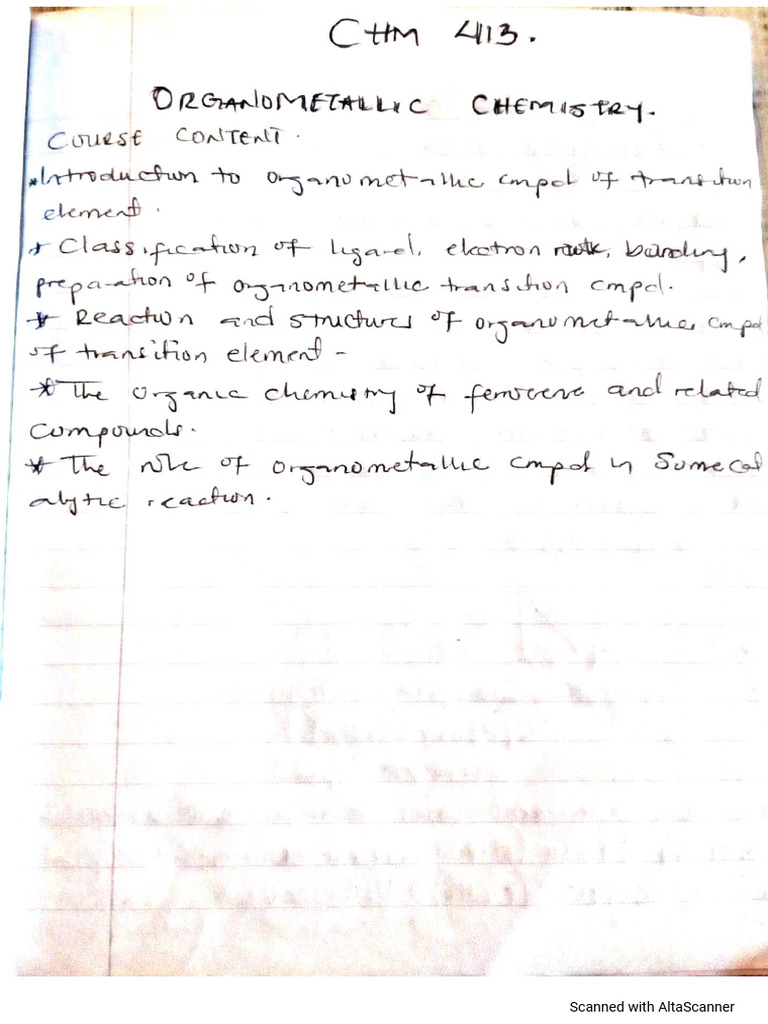 CHM 413.
ORGANOMETALLIC CHEMISTRY.
COURSE CONTENT.
*Introduction to organometallic cmpd of transition
element.
* Classification of ligand, electron bonding,
preparation of organometallic transition cmpd.
* Reaction and structures of organometallic cmpd
of transition element -
* The organic chemistry of ferrocene and related
compounds.
* The role of organometallic cmpd in some cat
alytic reaction.
Scanned with AltaScanner